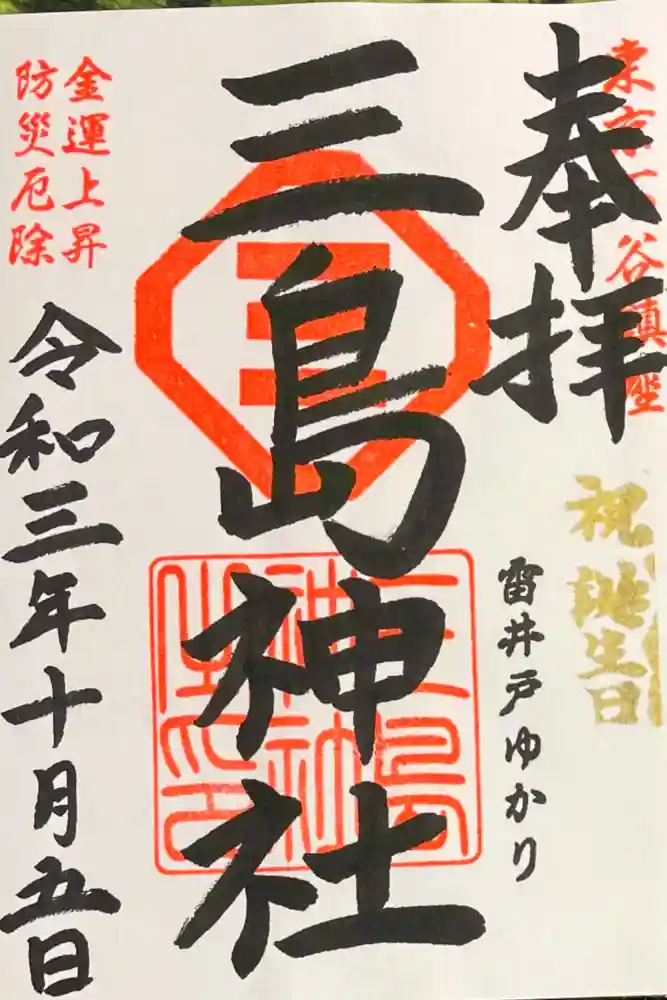 東京下谷鎮座
奉拝
祝 誕生日
雷井戸ゆかり
三島神社
三
三島
神社
之印
金運上昇
防災厄除
令和三年十月五日